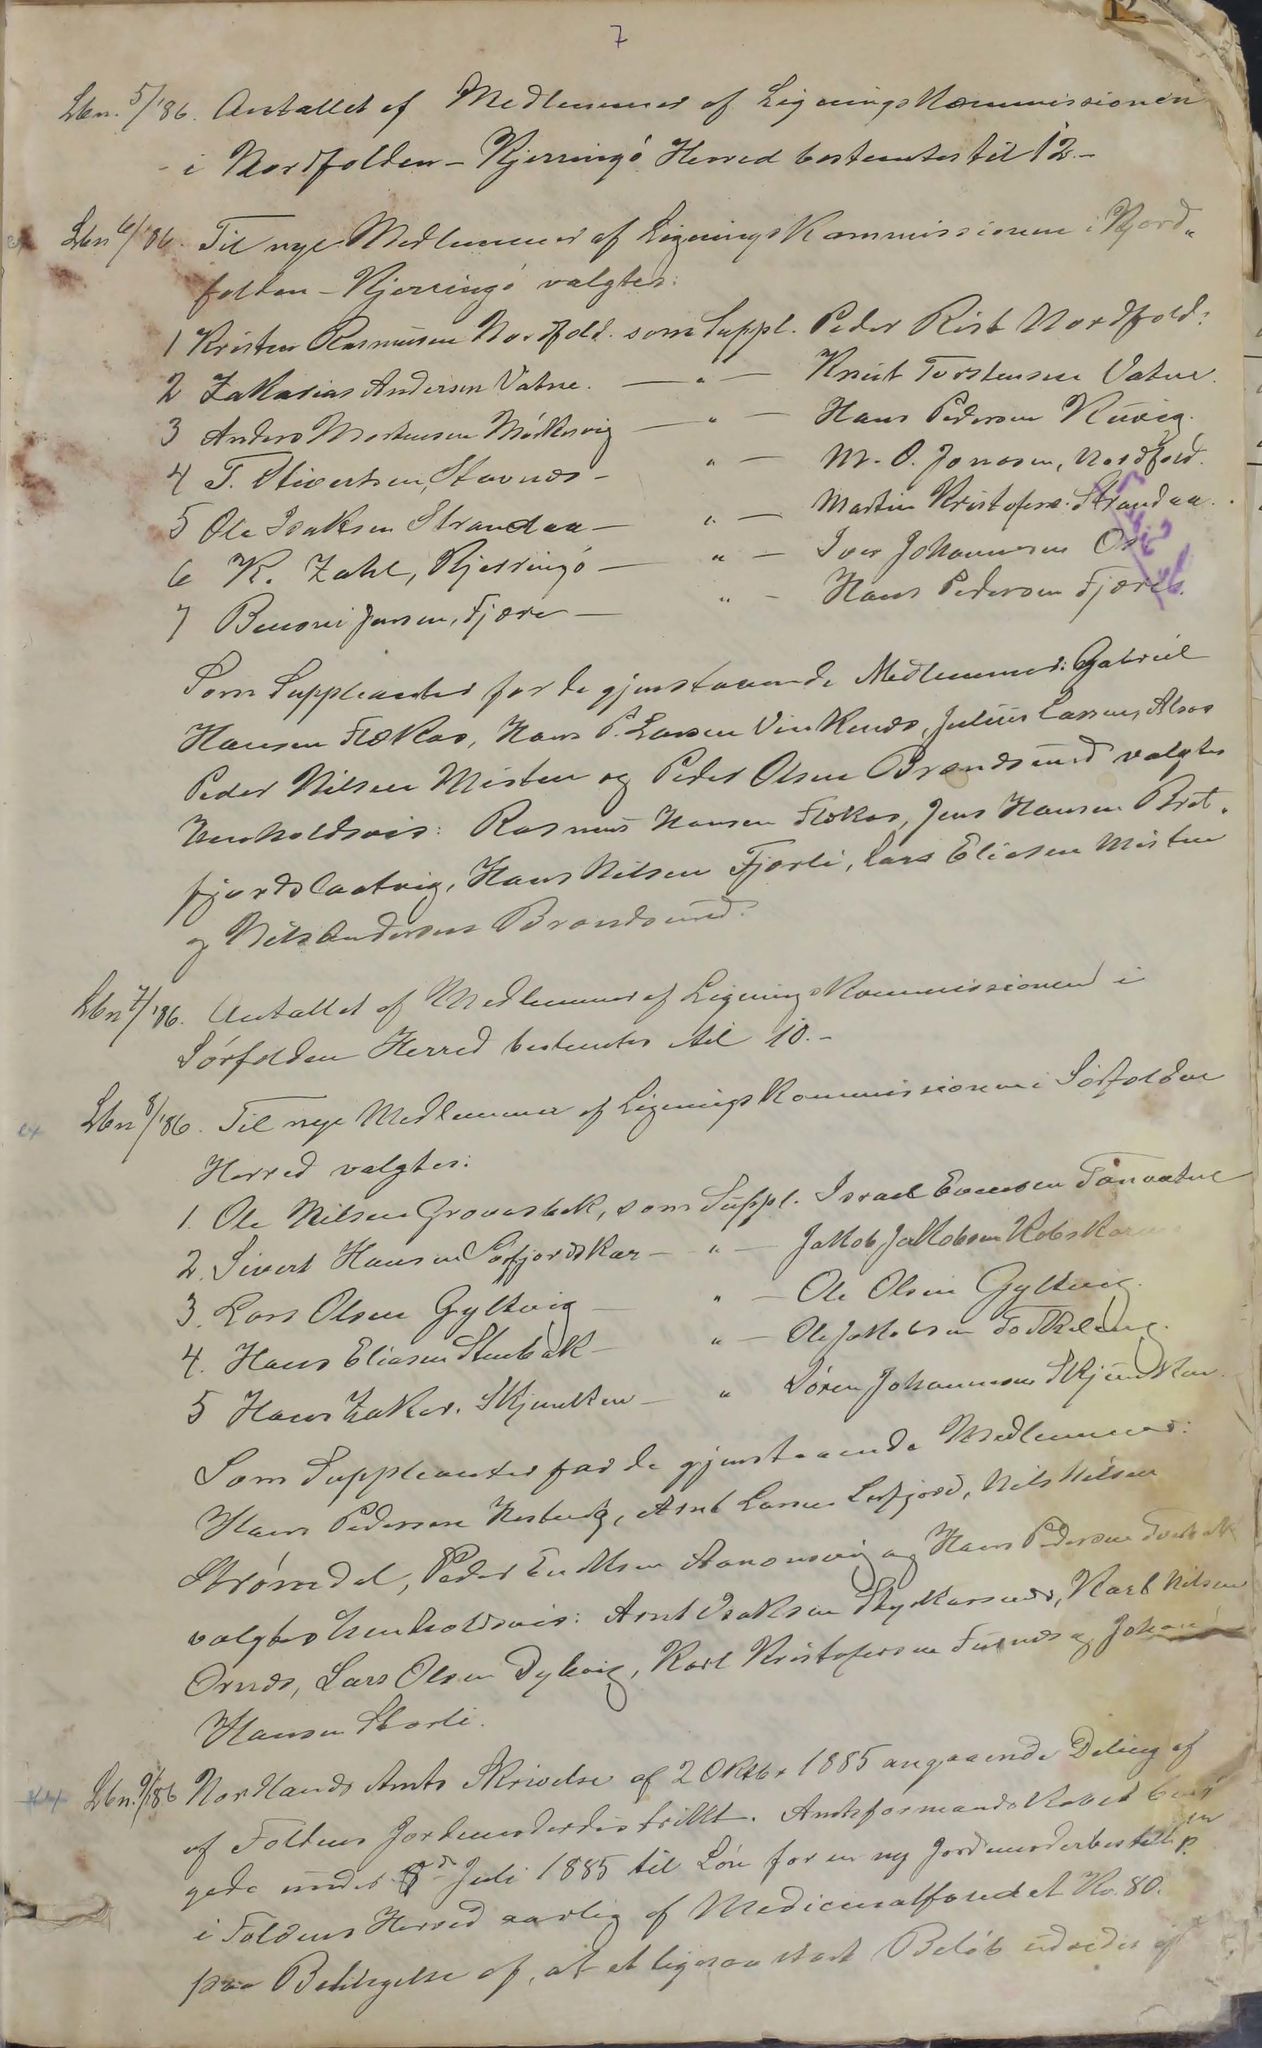 7
Lbn. 5/'86. Antallet af Medlemmer af Ligningskommissionen
i Nordfolden-Kjerringø Herred bestemtes til 12.-
Lbn 6/'86. Til nye Medlemmer af Ligningskommissionen i Nord„
folden-Kjerringø valgtes:
1 Kristen Rasmussen Nordfold. som Suppl. Peder Rist Nordfold:
2 Zakarias Andersen Vatne. — „ — Knut Torstensen Vatne.
3 Anders Mortensen Mørkesvig — „ — Hans Pedersen
4 T. Sivertsen, Stavnes - „ — M. O. Jonasen, Nordfold.
5 Ole Isaksen Strandaa — „ — Martin Kristofers. Strandaa.
6 K. Zahl, Kjerringø — „ — Iver Johannesen
7 Benoni Jensen, Fjære — „ - Hans Pedersen Fjære.
Som Suppleanter for de gjenstaaende Medlemmer: Gabriel
Hansen Flekos, Hans P. Larsen Vinkenes, Julius Larsen, Alsos
Peder Nilsen Misten og Peder Olsen Brandsund valgtes
henholdsvis: Rasmus Hansen Flekos, Jens Hansen Bot„
fjordslaatvig, Hans Nilsen Fjærli, Lars Eliasen Misten
og Nils Andersen Brandsund.
Lbn 7/'86. Antallet af Medlemmer af Ligningskommissionen i
Sørfolden Herred bestemtes til 10.-
Lbn 8/'86. Til nye Medlemmer af Ligningskommissionen i Sørfolden
Herred valgtes:
1. Ole Nilsen Grovasbak, som Suppl. Israel Evensen Tørvatne
2. Sivert Hansen Sørfjordskar — „ — Jakob Jakobsen
3. Lars Olsen Gyltvig — „ — Ole Olsen Gyltvig.
4. Hans Eliasen Stenbak — „ — Ole Jakobsen
5 Hans Zakar. — „ Søren Johannesen
Som Suppleanter for de gjenstaaende Medlemmer:
Hans Pedersen Arnt Larsen Lerfjord, Nils Nilsen
Strømdel, Peder Aanonsvig og Hans Pedersen
valgtes henholdsvis: Arnt Isaksen Karl Nilsen
Ornes, Lars Olsen Dybvig, Karl Kristofersen og Johan
Hansen Storli.
Lbn. 9/'86 Nordlands Amts Skrivelse af 2 Oktbr 1885 angaaende Deling af
af Foldens Jordemoderdistrikt. Amtsformandskabet bevil
gede under 8de Juli 1885 til Løn for en ny Jordemoderbestilling
i Foldens Herred aarlig af Medicinalfondet Kr. 80.
paa Betingelse af, at et ligesaa stort Beløb udredes af